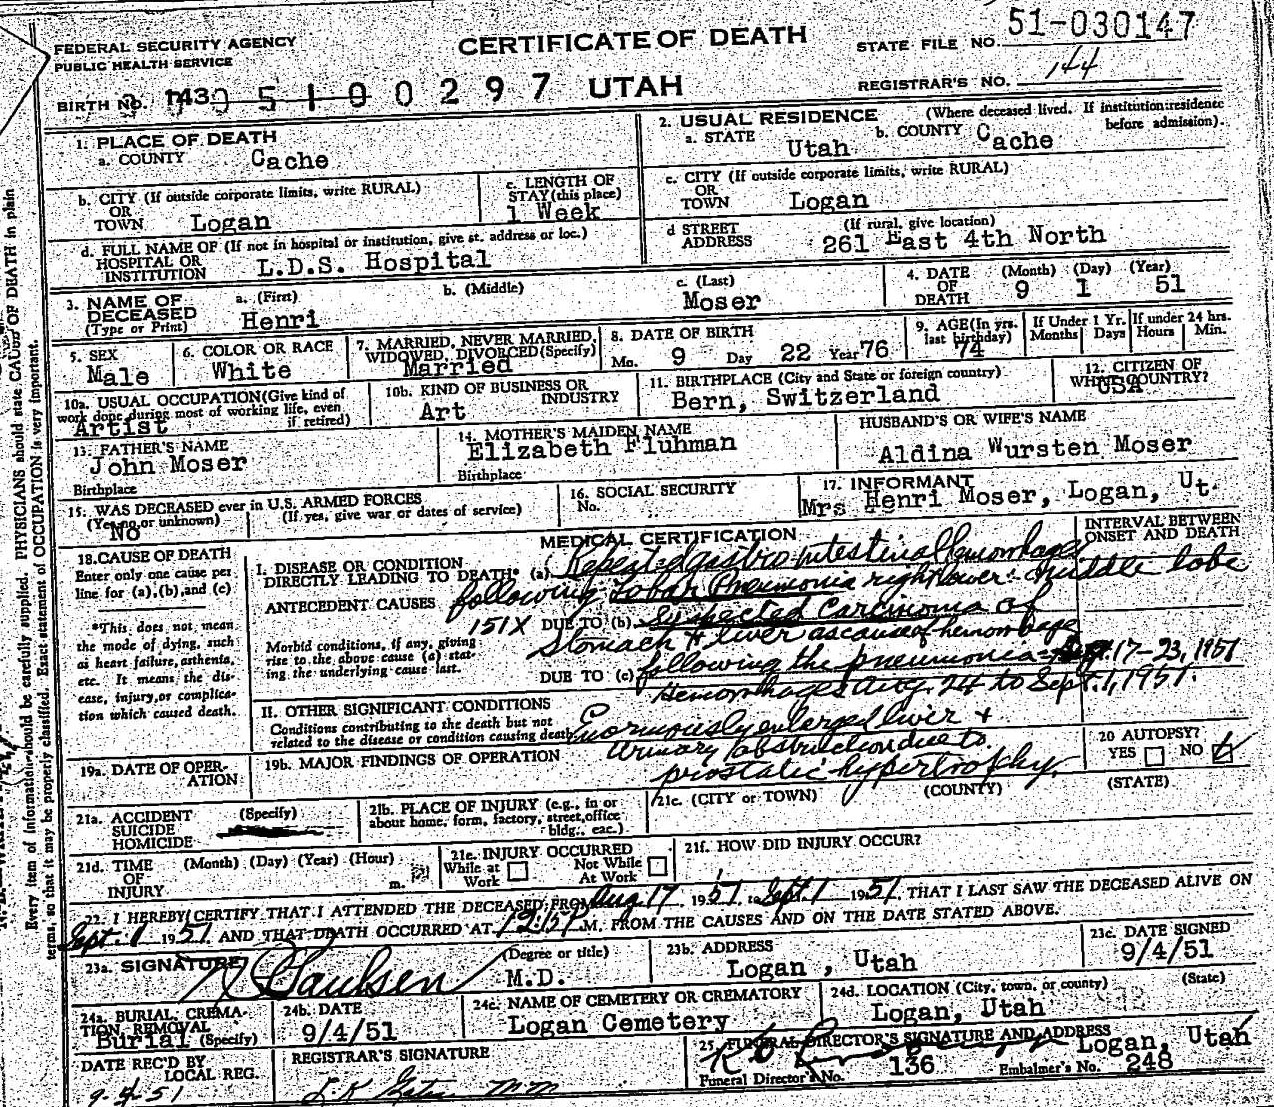 FEDERAL SECURITY AGENCY
PUBLIC HEALTH SERVICE
CERTIFICATE OF DEATH
STATE FILE NO. 51-030147
UTAH
REGISTRAR'S NO. 144
BIRTH NO. 143 0 5 1 0 0 2 9 7
1. PLACE OF DEATH
a. COUNTY Cache
2. USUAL RESIDENCE (Where deceased lived. If institution: residence before admission).
a. STATE Utah b. COUNTY Cache
b. CITY (If outside corporate limits, write RURAL)
OR
TOWN Logan
c. LENGTH OF
STAY (this place)
1 Week
c. CITY (If outside corporate limits, write RURAL)
OR
TOWN Logan
d. FULL NAME OF (If not in hospital or institution, give st. address or loc.)
HOSPITAL OR
INSTITUTION L.D.S. Hospital
d STREET (If rural, give location)
ADDRESS 261 East 4th North
3. NAME OF
DECEASED
(Type or Print)
a. (First) Henri
b. (Middle)
c. (Last) Moser
4. DATE OF DEATH (Month) (Day) (Year)
9 1 51
5. SEX
Male
6. COLOR OR RACE
White
7. MARRIED, NEVER MARRIED,
WIDOWED, DIVORCED (Specify)
Married
8. DATE OF BIRTH
Mo. 9 Day 22 Year 76
9. AGE (In yrs.
last birthday)
74
If Under 1 Yr.
Months Days
If under 24 hrs.
Hours Min.
10a. USUAL OCCUPATION (Give kind of
work done during most of working life, even
if retired)
Artist
10b. KIND OF BUSINESS OR
INDUSTRY
Art
11. BIRTHPLACE (City and State or foreign country)
Bern, Switzerland
12. CITIZEN OF
WHAT COUNTRY?
USA
13. FATHER'S NAME
John Moser
Birthplace
14. MOTHER'S MAIDEN NAME
Elizabeth Fluhman
Birthplace
HUSBAND'S OR WIFE'S NAME
Aldina Wursten Moser
15. WAS DECEASED ever in U.S. ARMED FORCES
(Yes, no, or unknown) (If yes, give war or dates of service)
No
16. SOCIAL SECURITY
No.
17. INFORMANT
Mrs Henri Moser, Logan, Ut.
MEDICAL CERTIFICATION
INTERVAL BETWEEN
ONSET AND DEATH
18. CAUSE OF DEATH
Enter only one cause per
line for (a), (b), and (c)
*This does not mean
the mode of dying, such
as heart failure, asthenia,
etc. It means the dis-
ease, injury, or complica-
tion which caused death.
I. DISEASE OR CONDITION
DIRECTLY LEADING TO DEATH* (a) Repeated gastro intestinal hemorrhages
following Lobar Pneumonia right lower & middle lobe
ANTECEDENT CAUSES
151X DUE TO (b) Suspected Carcinoma of
Stomach & liver as cause of hemorrhage
Morbid conditions, if any, giving
rise to the above cause (a) stat-
ing the underlying cause last.
DUE TO (c) following the pneumonia - Aug 17-23, 1951
Hemorrhages Aug. 24 to Sept. 1, 1951.
II. OTHER SIGNIFICANT CONDITIONS
Conditions contributing to the death but not
related to the disease or condition causing death.
Enormously enlarged liver &
Urinary obstruction due to
prostatic hypertrophy.
19a. DATE OF OPER-
ATION
19b. MAJOR FINDINGS OF OPERATION
20 AUTOPSY?
YES NO
21a. ACCIDENT (Specify)
SUICIDE
HOMICIDE
21b. PLACE OF INJURY (e.g., in or
about home, form, factory, street, office
bldg., eac.)
21c. (CITY or TOWN) (COUNTY) (STATE)
21d. TIME (Month) (Day) (Year) (Hour)
OF
INJURY m.
21e. INJURY OCCURRED
While at Work Not While At Work
21f. HOW DID INJURY OCCUR?
22. I HEREBY CERTIFY THAT I ATTENDED THE DECEASED FROM Aug 17 1951, to Sept. 1 1951, THAT I LAST SAW THE DECEASED ALIVE ON
Sept. 1 1951, AND THAT DEATH OCCURRED AT 12:15 P. M. FROM THE CAUSES AND ON THE DATE STATED ABOVE.
23a. SIGNATURE (Degree or title)
M.D.
23b. ADDRESS
Logan, Utah
23c. DATE SIGNED
9/4/51
24a. BURIAL, CREMA-
TION, REMOVAL
(Specify)
Burial
24b. DATE
9/4/51
24c. NAME OF CEMETERY OR CREMATORY
Logan Cemetery
24d. LOCATION (City, town, or county) (State)
Logan, Utah
DATE REC'D BY
LOCAL REG.
9-4-51
REGISTRAR'S SIGNATURE
25. FUNERAL DIRECTOR'S SIGNATURE AND ADDRESS
Logan, Utah
Funeral Director's No. 136
Embalmer's No. 248
Every item of information should be carefully supplied. PHYSICIANS should state CAUSE OF DEATH in plain
terms, so that it may be properly classified. Exact statement of OCCUPATION is very important.